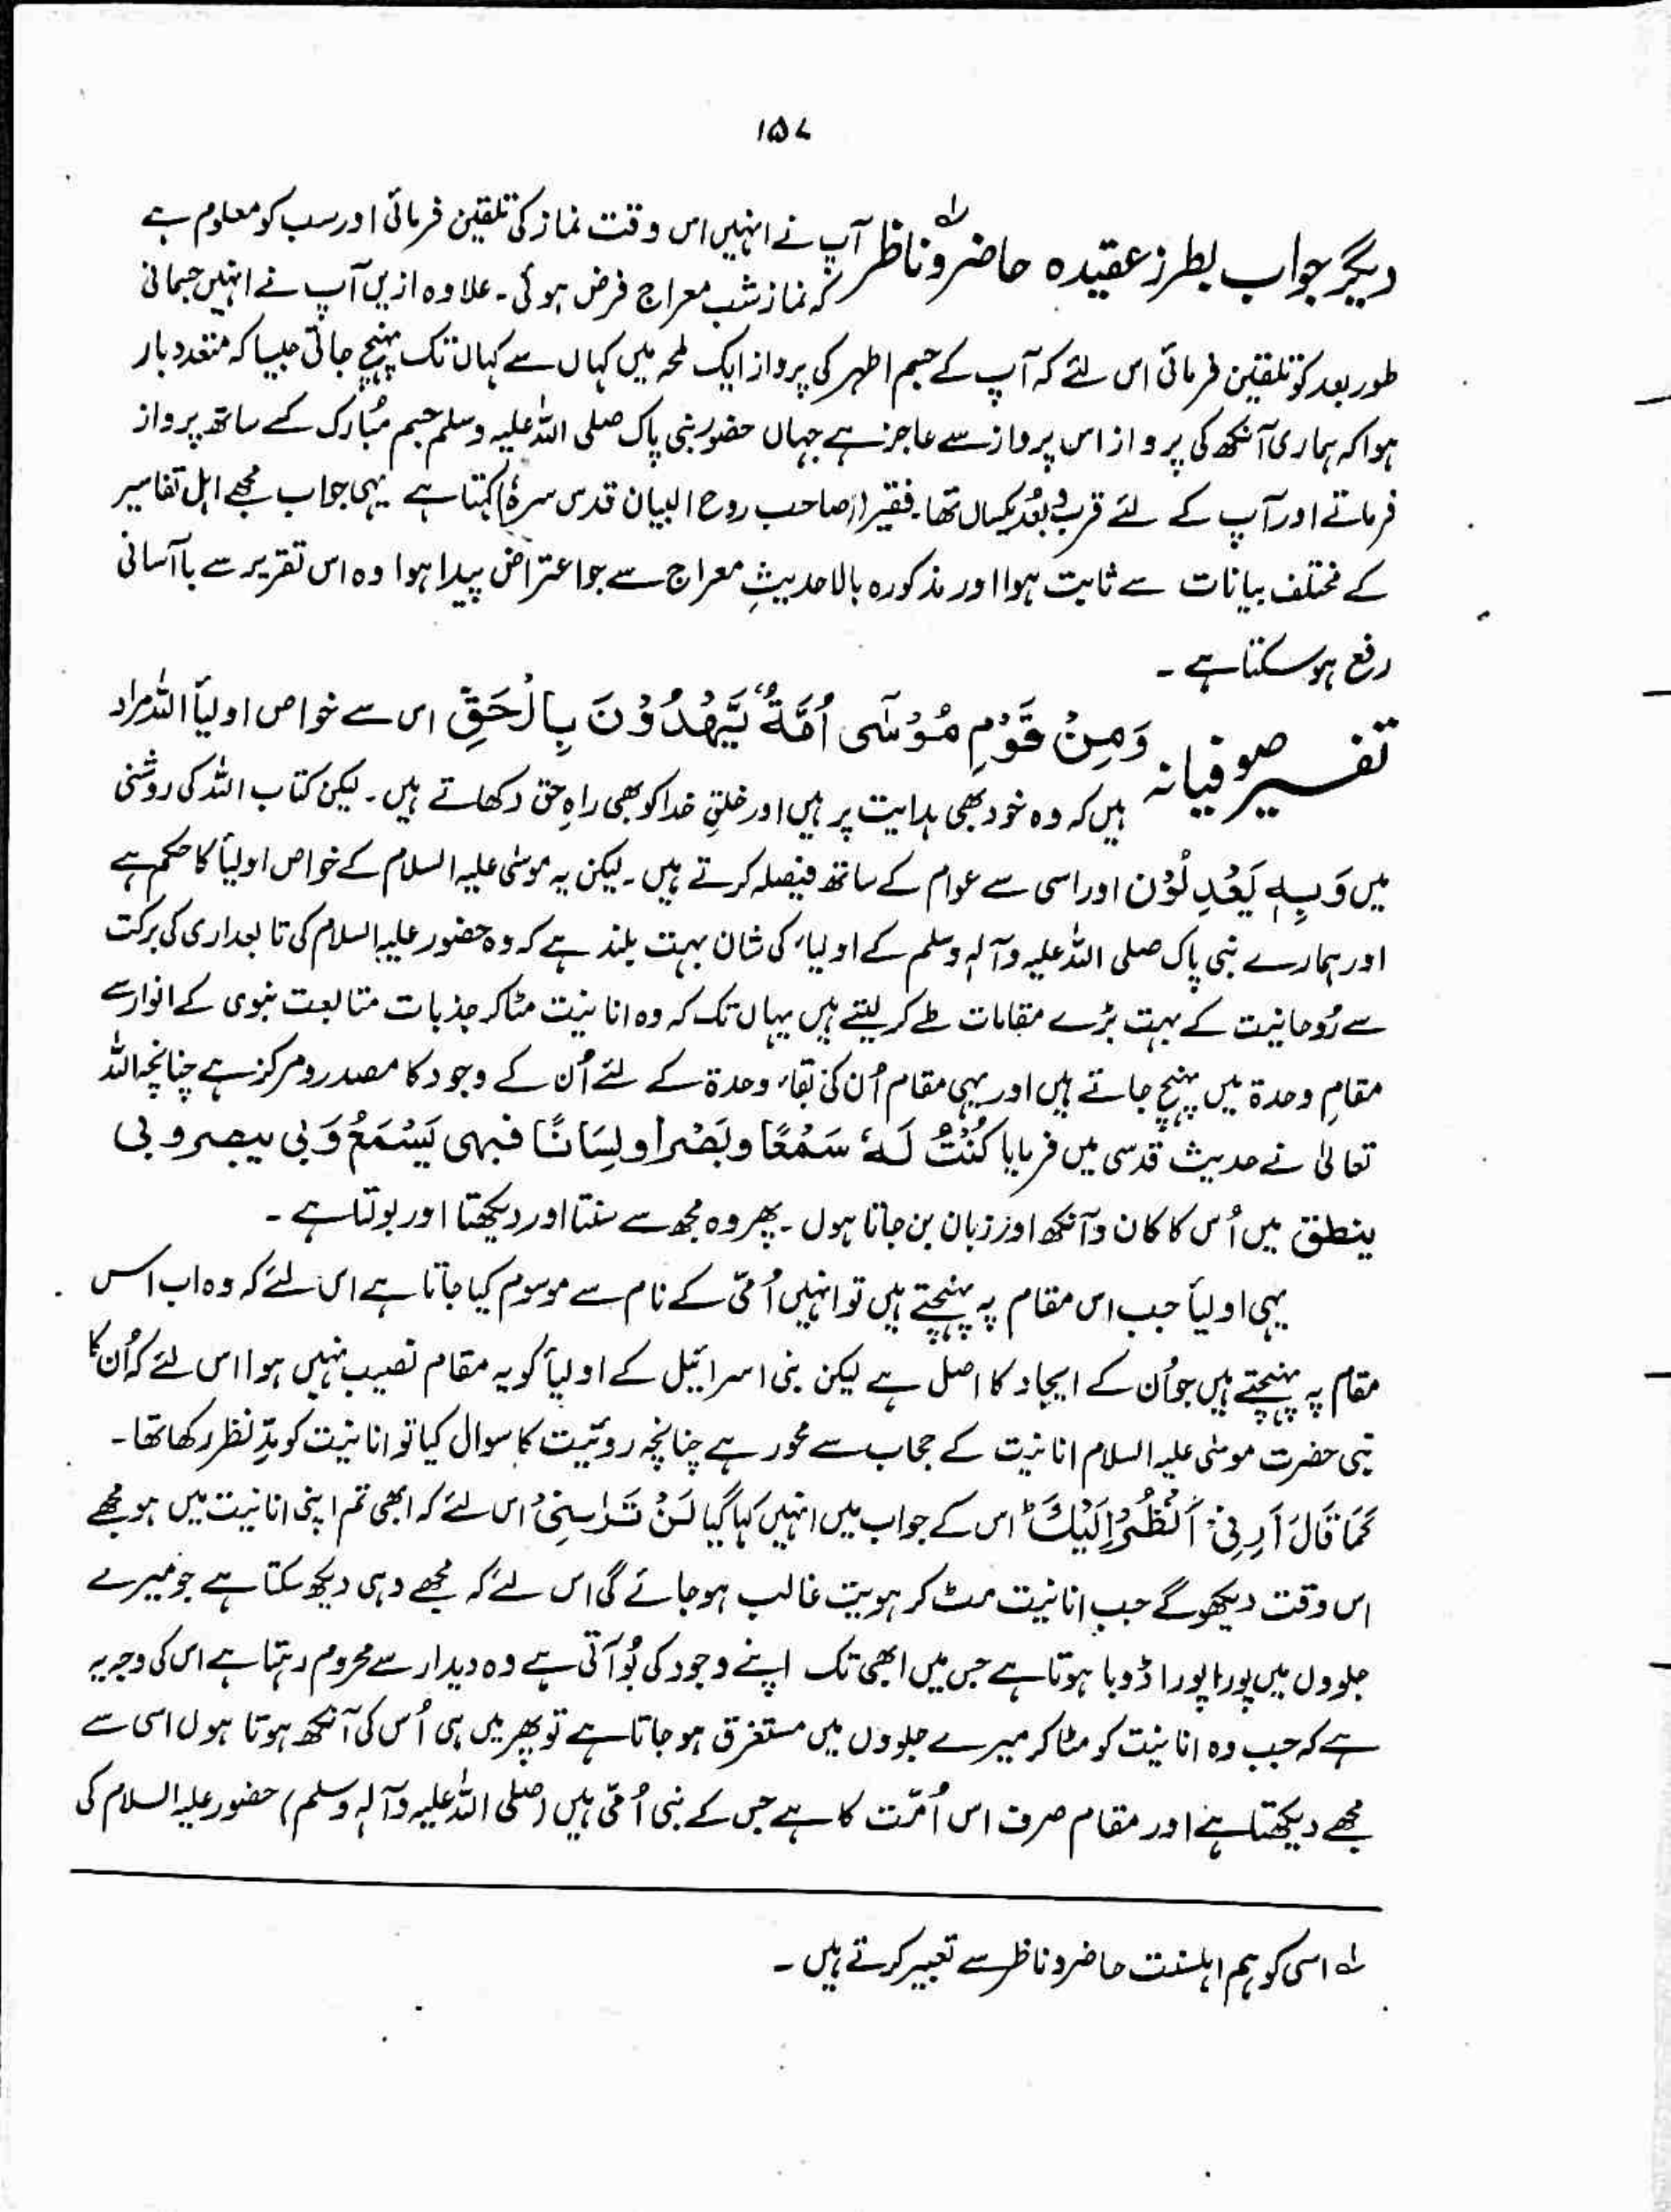 ۱۵۷
دیگر جواب بطرز عقیدہ حاضر و ناظر؂۱ آپ نے انہیں اس وقت نماز کی تلقین فرمائی اور سب کو معلوم ہے
کہ نماز شب معراج فرض ہوئی۔ علاوہ ازیں آپ نے انہیں جسمانی
طور بعد کو تلقین فرمائی اس لئے کہ آپ کے جسم اطہر کی پرواز ایک لمحہ میں کہاں سے کہاں تک پہنچ جاتی جیسا کہ متعدد بار
ہوا کہ ہماری آنکھ کی پرواز اس پرواز سے عاجز ہے جہاں حضور نبی پاک صلی اللہ علیہ وسلم جسم مُبارک کے ساتھ پرواز
فرماتے اور آپ کے لئے قرب و بُعد یکساں تھا۔ فقیر (صاحب روح البیان قدس سرہٗ) کہتا ہے یہی جواب مجھے اہل تفاسیر
کے مختلف بیانات سے ثابت ہوا اور مذکورہ بالا حدیثِ معراج سے جو اعتراض پیدا ہوا وہ اس تقریر سے باآسانی
رفع ہو سکتا ہے۔
تفسیر صوفیانہ وَمِنْ قَوْمِ مُوْسٰٓی اُمَّةٌ یَّهْدُوْنَ بِالْحَقِّ اس سے خواص اولیأ اللہ مراد
ہیں کہ وہ خود بھی ہدایت پر ہیں اور خلقِ خدا کو بھی راہِ حق دکھاتے ہیں۔ لیکن کتاب اللہ کی روشنی
میں وَبِهٖ یَعْدِلُوْن اور اسی سے عوام کے ساتھ فیصلہ کرتے ہیں۔ لیکن یہ موسٰی علیہ السلام کے خواص اولیأ کا حکم ہے
اور ہمارے نبی پاک صلی اللہ علیہ وآلہٖ وسلم کے اولیاء کی شان بہت بلند ہے کہ وہ حضور علیہ السلام کی تابعداری کی برکت
سے رُوحانیت کے بہت بڑے مقامات طے کر لیتے ہیں یہاں تک کہ وہ انانیت مٹا کر جذبات متابعت نبوی کے انوار سے
مقامِ وحدۃ میں پہنچ جاتے ہیں اور یہی مقام اُن کی بقاء وحدۃ کے لئے اُن کے وجود کا مصدر و مرکز ہے چنانچہ اللہ
تعالٰی نے حدیث قدسی میں فرمایا کُنْتُ لَهٗ سَمْعًا وبَصْرا ولِسَانًا فبهی یَسْمَعُ وَبی یبصر وبی
ینطق میں اُس کا کان و آنکھ اور زبان بن جاتا ہوں۔ پھر وہ مجھ سے سنتا اور دیکھتا اور بولتا ہے۔
یہی اولیأ جب اس مقام پہ پہنچتے ہیں تو انہیں اُمّی کے نام سے موسوم کیا جاتا ہے اس لئے کہ وہ اب اس
مقام پہ پہنچتے ہیں جو اُن کے ایجاد کا اصل ہے لیکن بنی اسرائیل کے اولیأ کو یہ مقام نصیب نہیں ہوا اس لئے کہ اُن کا
نبی حضرت موسٰی علیہ السلام انانیت کے حجاب سے محور ہے چنانچہ روئیت کا سوال کیا تو انانیت کو مدِّ نظر رکھا تھا۔
کَمَا قَالَ اَرِنِیْ اَنْظُرْ اِلَیْكَ ط اس کے جواب میں انہیں کہا گیا لَنْ تَرٰىنِیْ اس لئے کہ ابھی تم اپنی انانیت میں ہو مجھے
اس وقت دیکھو گے جب انانیت مٹ کر ہویت غالب ہو جائے گی اس لئے کہ مجھے وہی دیکھ سکتا ہے جو میرے
جلووں میں پورا پورا ڈوبا ہوتا ہے جس میں ابھی تک اپنے وجود کی بُو آتی ہے وہ دیدار سے محروم رہتا ہے اس کی وجہ یہ
ہے کہ جب وہ انانیت کو مٹا کر میرے جلووں میں مستغرق ہو جاتا ہے تو پھر میں ہی اُس کی آنکھ ہوتا ہوں اسی سے
مجھے دیکھتا ہے اور مقام صرف اس اُمّت کا ہے جس کے نبی اُمّی ہیں (صلی اللہ علیہ وآلہٖ وسلم) حضور علیہ السلام کی
؂۱ اسی کو ہم اہلسنت حاضر و ناظر سے تعبیر کرتے ہیں۔